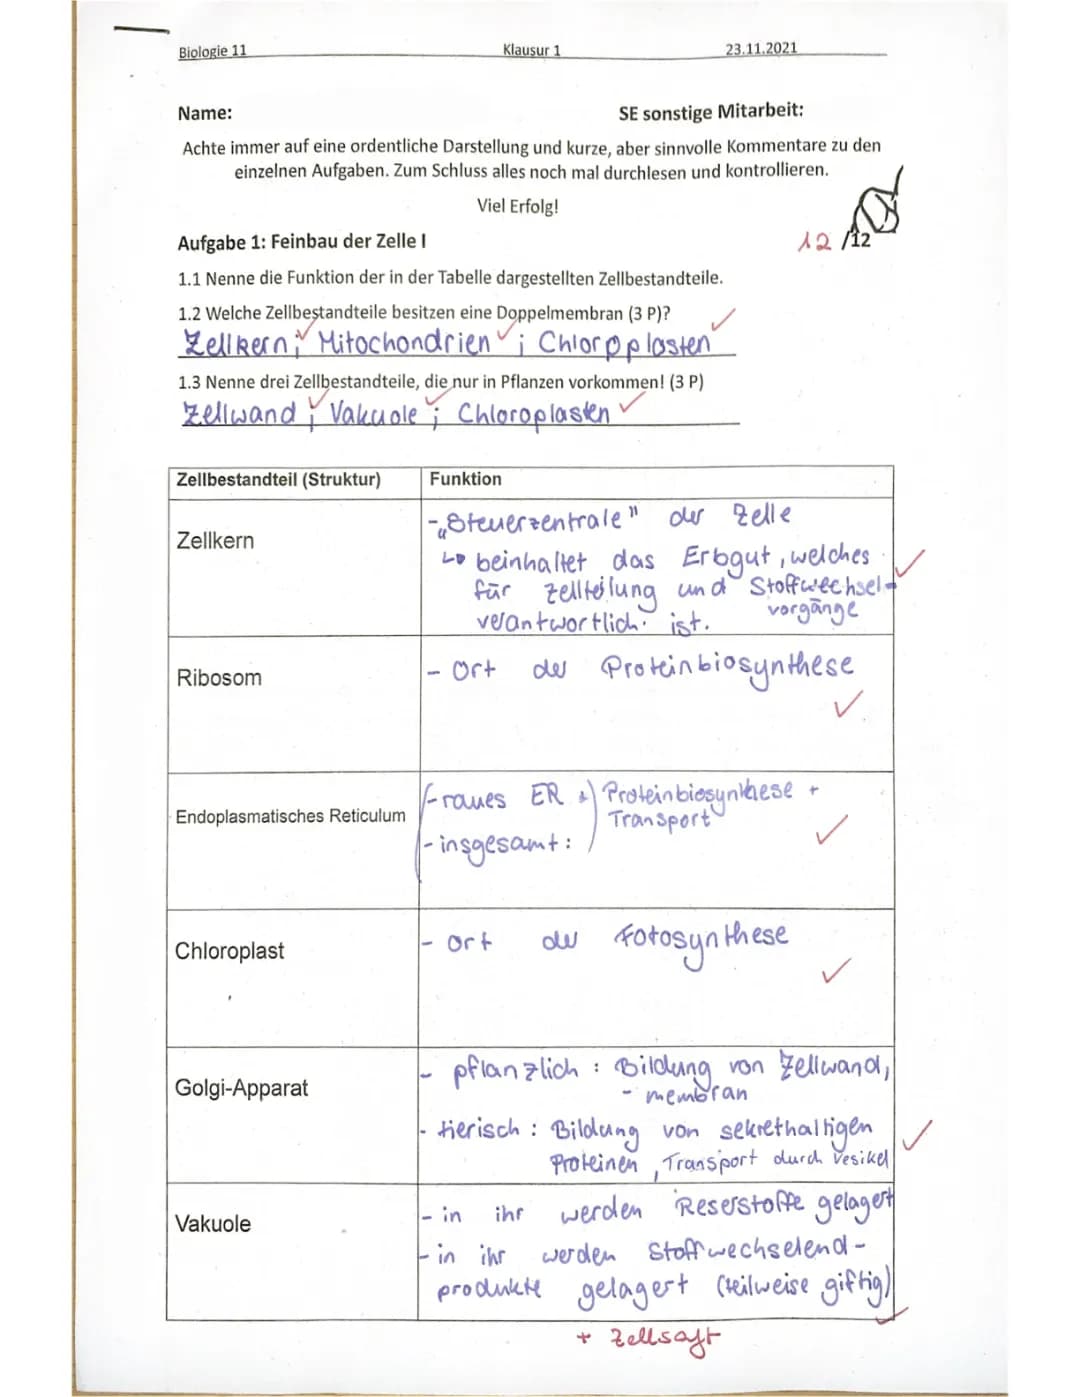 Biologie 11 Klausur 1 23.11.2021
Name: SE sonstige Mitarbeit:
Achte immer auf eine ordentliche Darstellung und kurze, aber sinnvolle Kommentare zu den
einzelnen Aufgaben. Zum Schluss alles noch mal durchlesen und kontrollieren.
Viel Erfolg!
Aufgabe 1: Feinbau der Zelle I 12 /12
1.1 Nenne die Funktion der in der Tabelle dargestellten Zellbestandteile.
1.2 Welche Zellbestandteile besitzen eine Doppelmembran (3 P)?
Zellkern; Mitochondrien ; Chloropplasten
1.3 Nenne drei Zellbestandteile, die nur in Pflanzen vorkommen! (3 P)
Zellwand ; Vakuole ; Chloroplasten
Zellbestandteil (Struktur) Funktion
Zellkern
- „Steuerzentrale" der Zelle
↳ beinhaltet das Erbgut, welches
für Zellteilung und Stoffwechsel-
vorgänge
verantwortlich ist.
Ribosom
- Ort der Proteinbiosynthese
Endoplasmatisches Reticulum
- raues ER Proteinbiosynthese +
Transport
- insgesamt:
Chloroplast
- Ort der Fotosynthese
Golgi-Apparat
- pflanzlich : Bildung von Zellwand,
- membran
- tierisch : Bildung von sekrethaltigen
Proteinen, Transport durch Vesikel
Vakuole
- in ihr werden Reserstoffe gelagert
- in ihr werden Stoffwechselend-
produkte gelagert (teilweise giftig)
+ Zellsaft